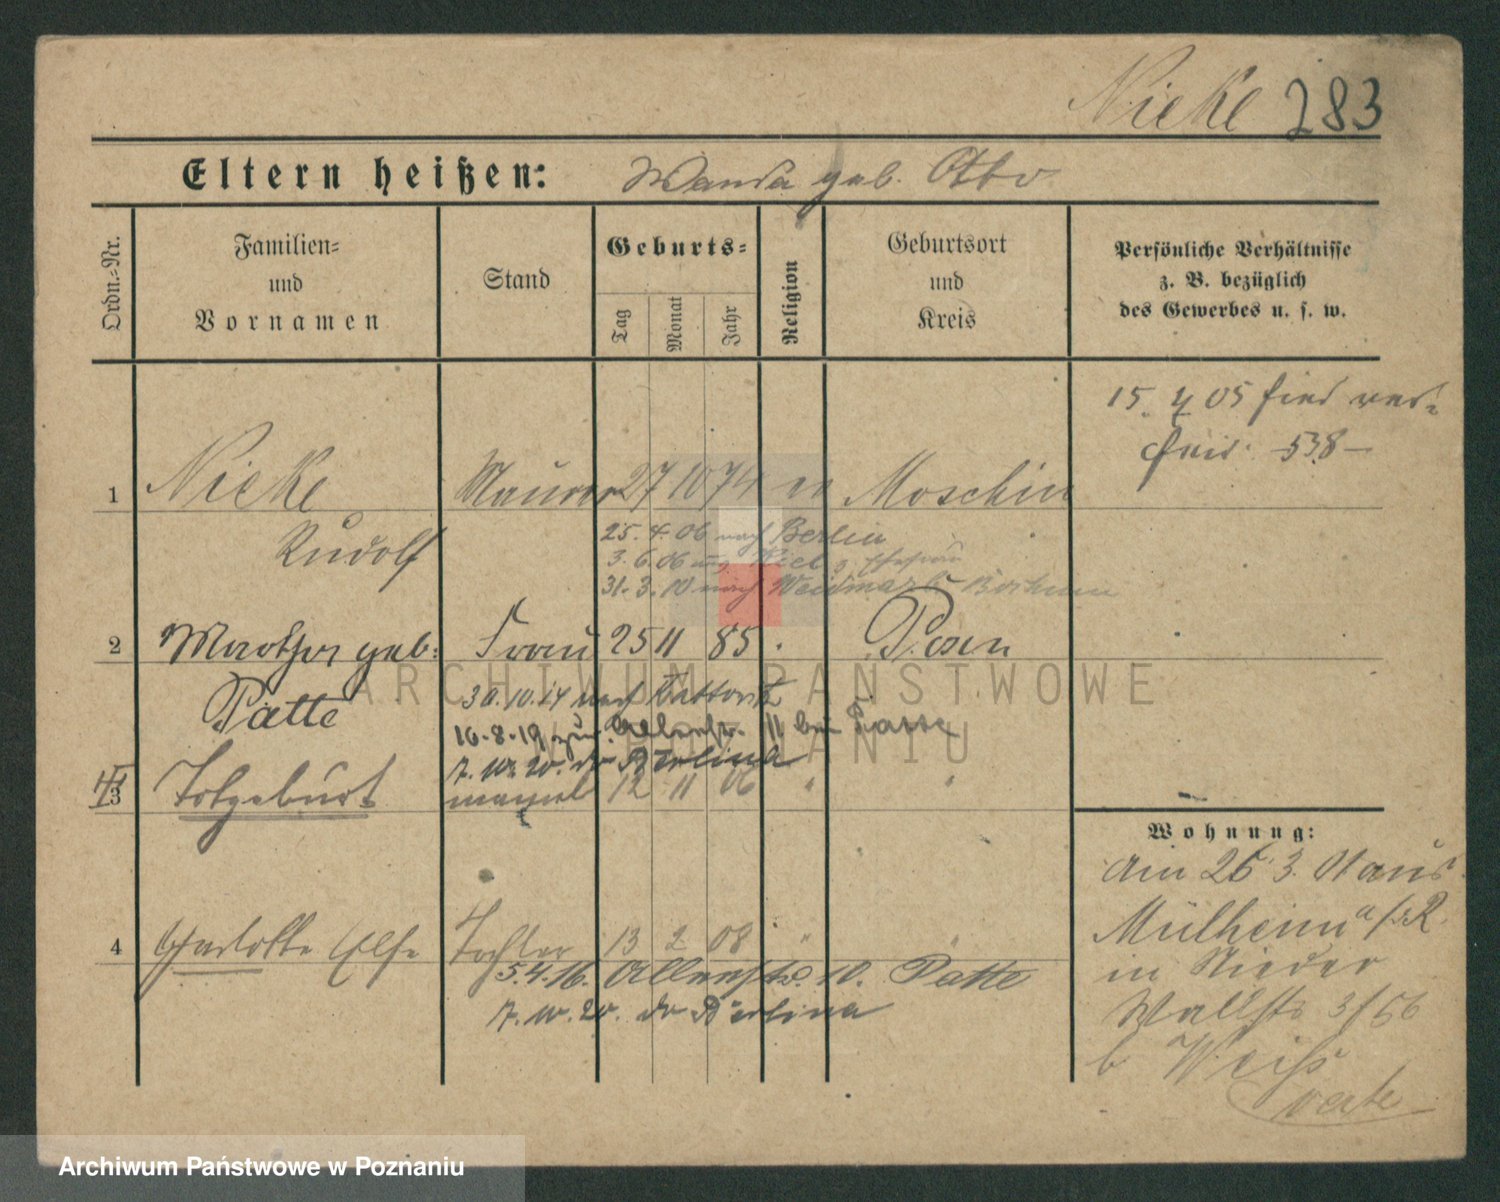 Nieke 283
Eltern heißen: Wanda geb. Otto
Ordn.-Nr.
Familien-
und
Vornamen
Stand
Geburts-
Tag
Monat
Jahr
Religion
Geburtsort
und
Kreis
Persönliche Verhältnisse
z. B. bezüglich
des Gewerbes u. s. w.
15. 4 05
538
1 Nieke Maurer 27 10 74 ev Moschin
Rudolf
25. 4. 06 nach Berlin
3. 6. 06 Kiel Ehefrau
31. 3. 10 nach Bochum
2 Martha geb. Frau 25 11 85 Posen
Patte
30. 10. 14 nach Kattowitz
16. 8. 19 11 bei Patte
7. 10. 20. do Berlina
3 Totgeburt männl 12 11 06 " "
4 Charlotte Else Tochter 13 2 08 " "
5. 4. 16. 10. Patte
7. 10. 20. do Berlina
Wohnung:
Am 26 3. aus
Mülheim a/R
in Nieder
Wallstr 3/56
b Weiß
verte
ARCHIWUM PAŃSTWOWE
W POZNANIU
Archiwum Państwowe w Poznaniu